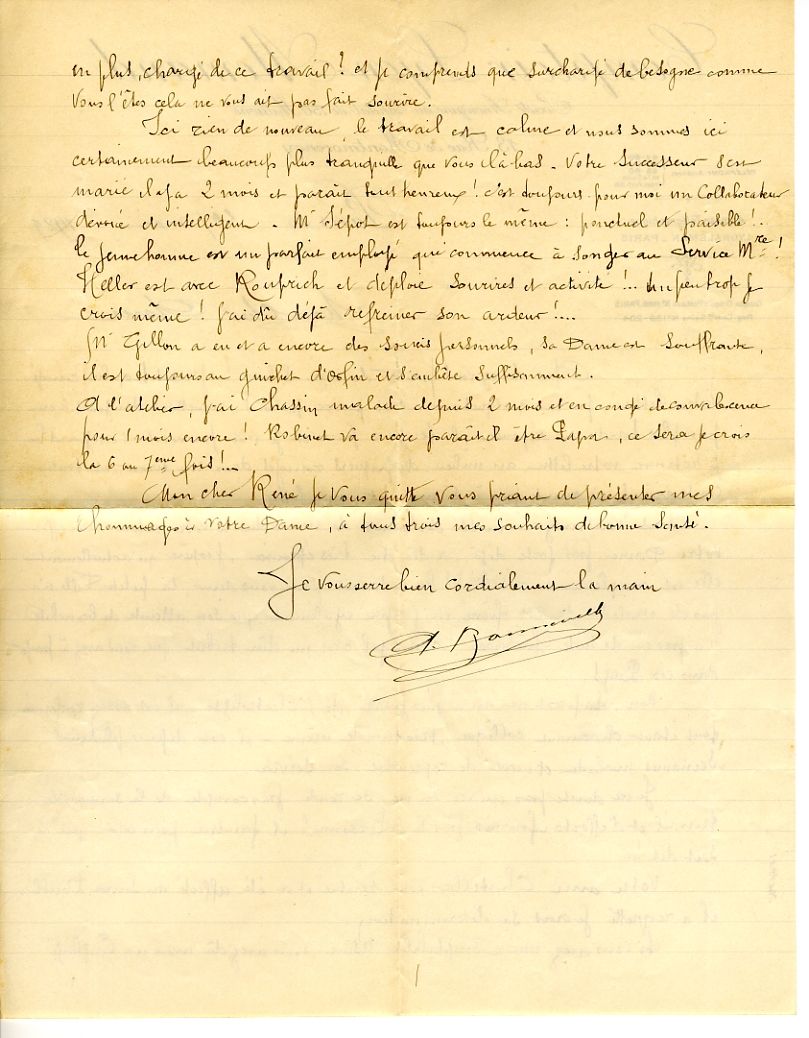 en plus, chargé de ce travail ! et je comprends que surchargé de besogne comme
vous l'êtes cela ne vous ait pas fait sourire.
Ici rien de nouveau, le travail est calme et nous sommes ici
certainement beaucoup plus tranquille que vous là-bas. Votre successeur s'est
marié il y a 2 mois et paraît tout heureux ! c'est toujours pour moi un collaborateur
dévoué et intelligent. Mr Sépot est toujours le même : ponctuel et paisible !.
Ce jeune homme est un parfait employé qui commence à songer au Service Mre !
Heller est avec et déploie sourires et activité !... un peu trop je
crois même ! j'ai dû déjà refréner son ardeur !...
Mr Gillon a eu et a encore des soucis personnels, sa Dame est souffrante,
il est toujours au guichet d'Orfin et s'embête suffisamment.
A l'atelier, j'ai Chassin malade depuis 2 mois et en congé de convalescence
pour 1 mois encore ! Robinet va encore paraît il être Papa, ce sera je crois
la 6 ou 7eme fois !...
Mon cher René je vous quitte vous priant de présenter mes
hommages à votre Dame, à tous trois mes souhaits de bonne santé.
Je vous serre bien cordialement la main